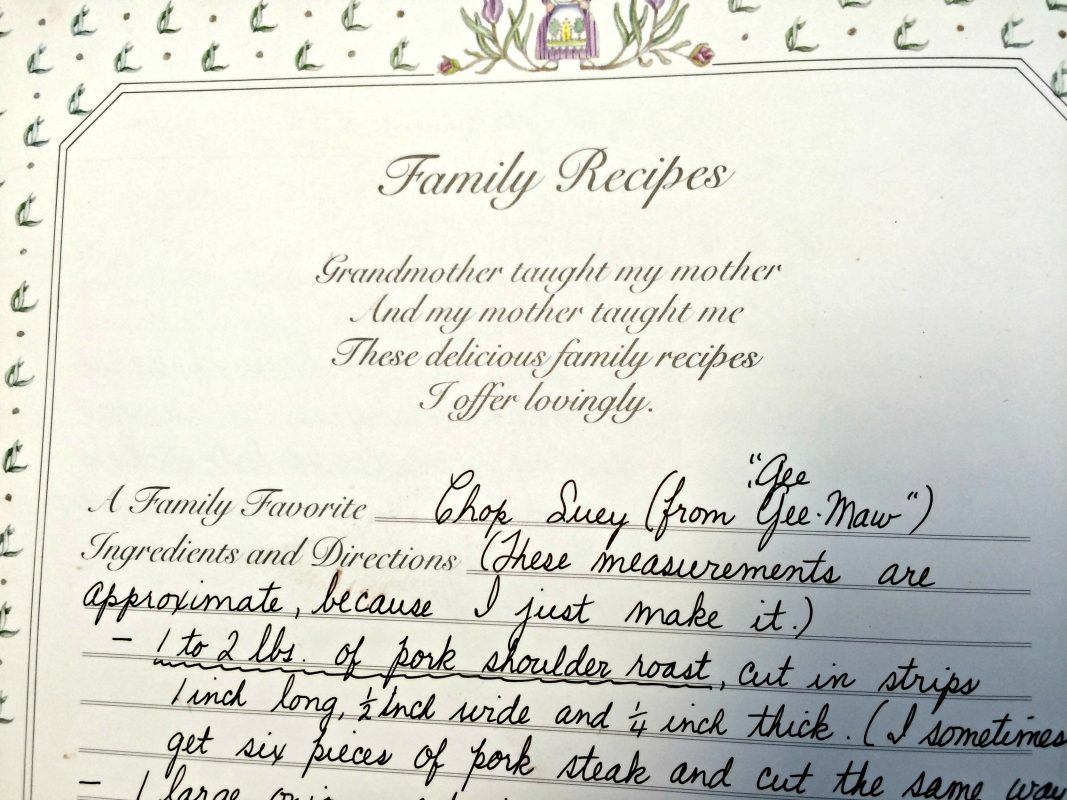 Family Recipes
Grandmother taught my mother
And my mother taught me
These delicious family recipes
I offer lovingly.
"Gee
A Family Favorite Chop Suey (from Gee-Maw")
Ingredients and Directions (These measurements are
approximate, because I just make it.)
- 1 to 2 lbs. of pork shoulder roast, cut in strips
1 inch long, ½ inch wide and ¼ inch thick. (I sometimes
get six pieces of pork steak and cut the same way
- 1 large